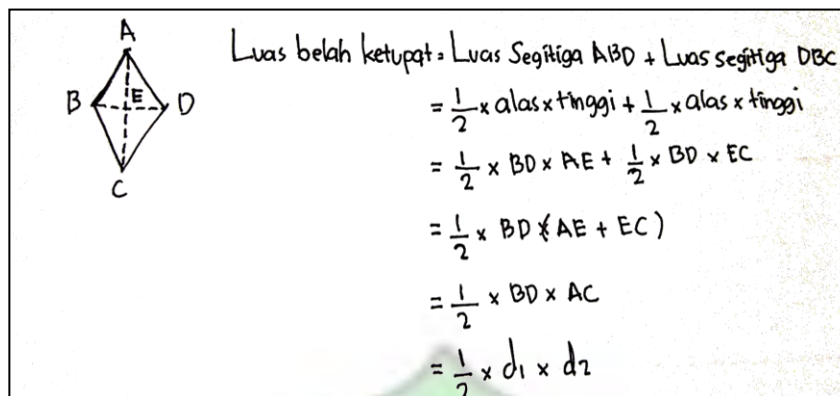 A
B E D
C
Luas belah ketupat = Luas Segitiga ABD + Luas segitiga DBC
= 1/2 × alas × tinggi + 1/2 × alas × tinggi
= 1/2 × BD × AE + 1/2 × BD × EC
= 1/2 × BD × (AE + EC)
= 1/2 × BD × AC
= 1/2 × d1 × d2